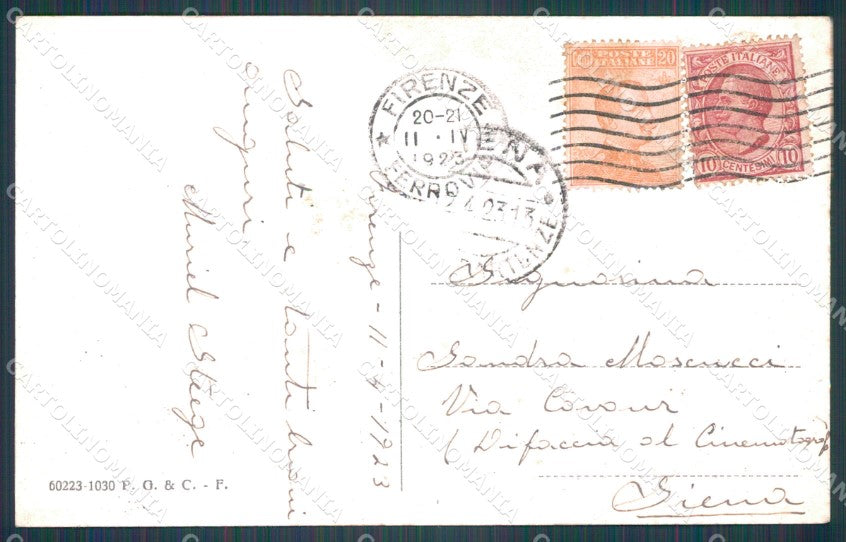 Saluti e tanti buoni
auguri
Muriel Steege
Firenze - 11-4-1923
60223-1030 P. G. & C. - F.
FIRENZE
20-21
11 · IV
1923
FERROVIA
SIENA
12.4.23.13
POSTE
ITALIANE
20
POSTE ITALIANE
10 CENTESIMI 10
Signorina
Sandra Moscucci
Via Cavour
(Difaccia al Cinematogr
Siena
CARTOLINOMANIA